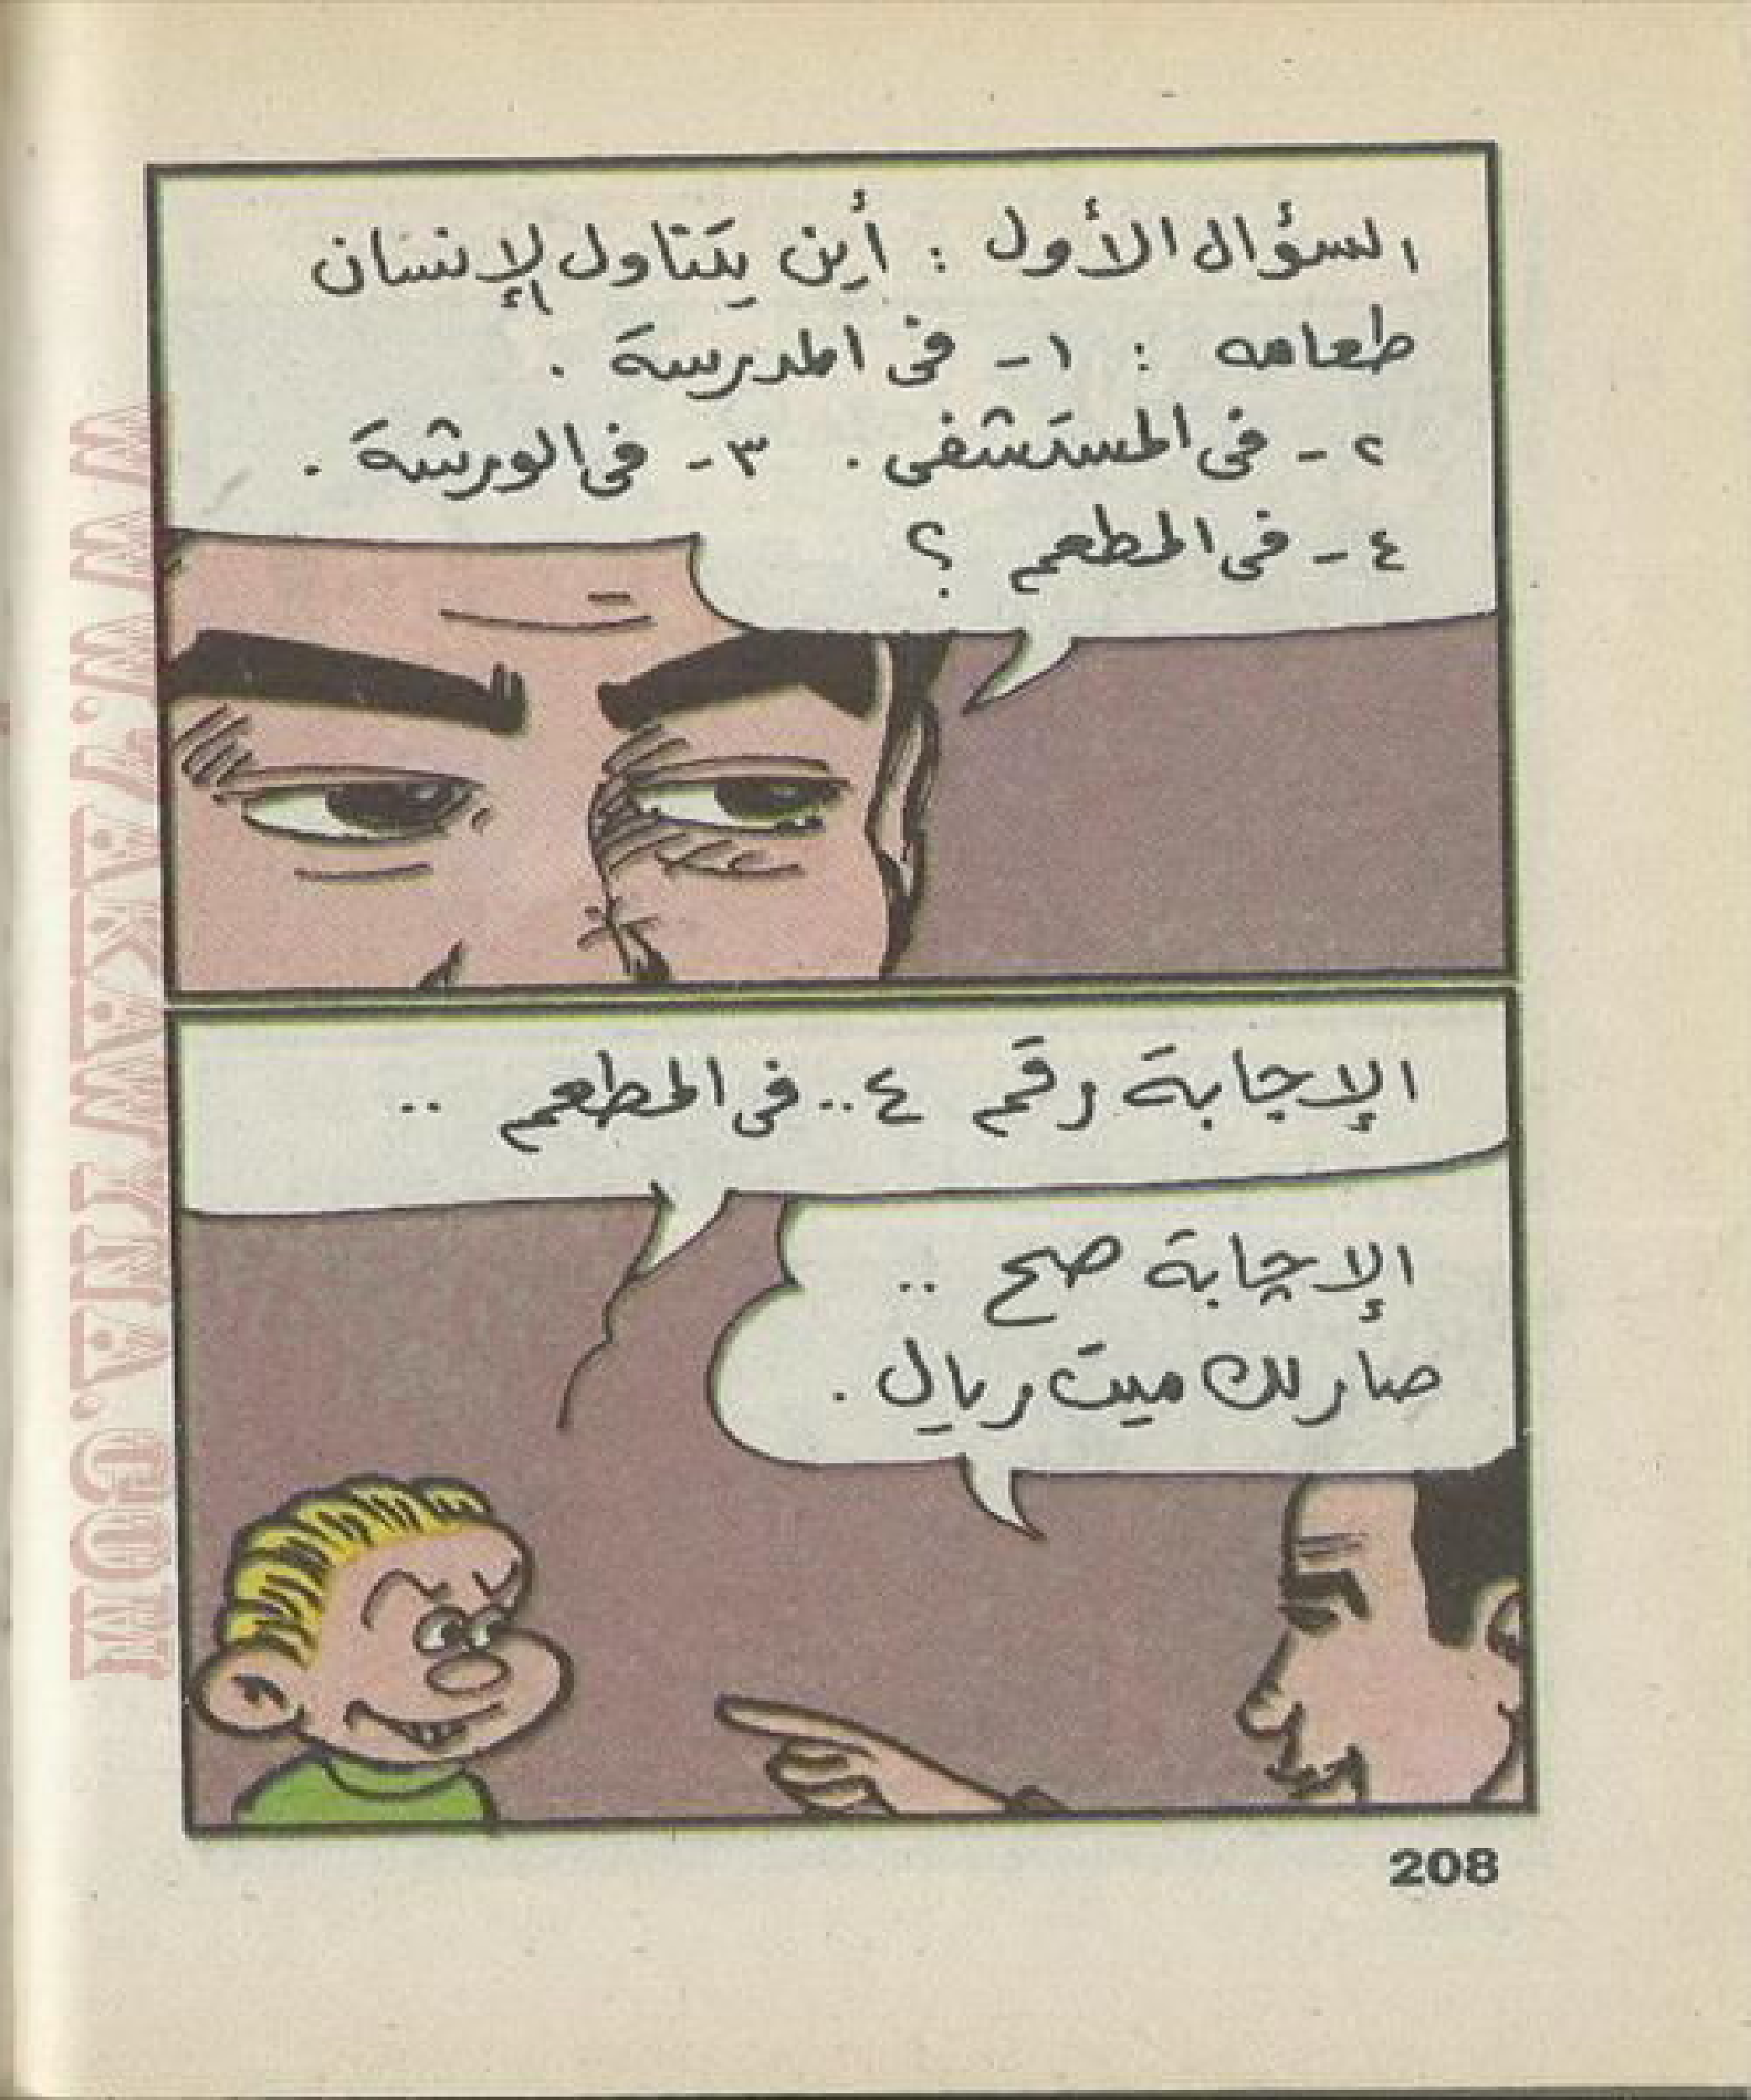 السؤال الأول : أين يتناول الإنسان
طعامه : ١- فى المدرسة .
٢- فى المستشفى . ٣- فى الورشة .
٤- فى المطعم ؟
الإجابة رقم ٤.. فى المطعم ..
الإجابة صح ..
صار لك ميت ريال .
208